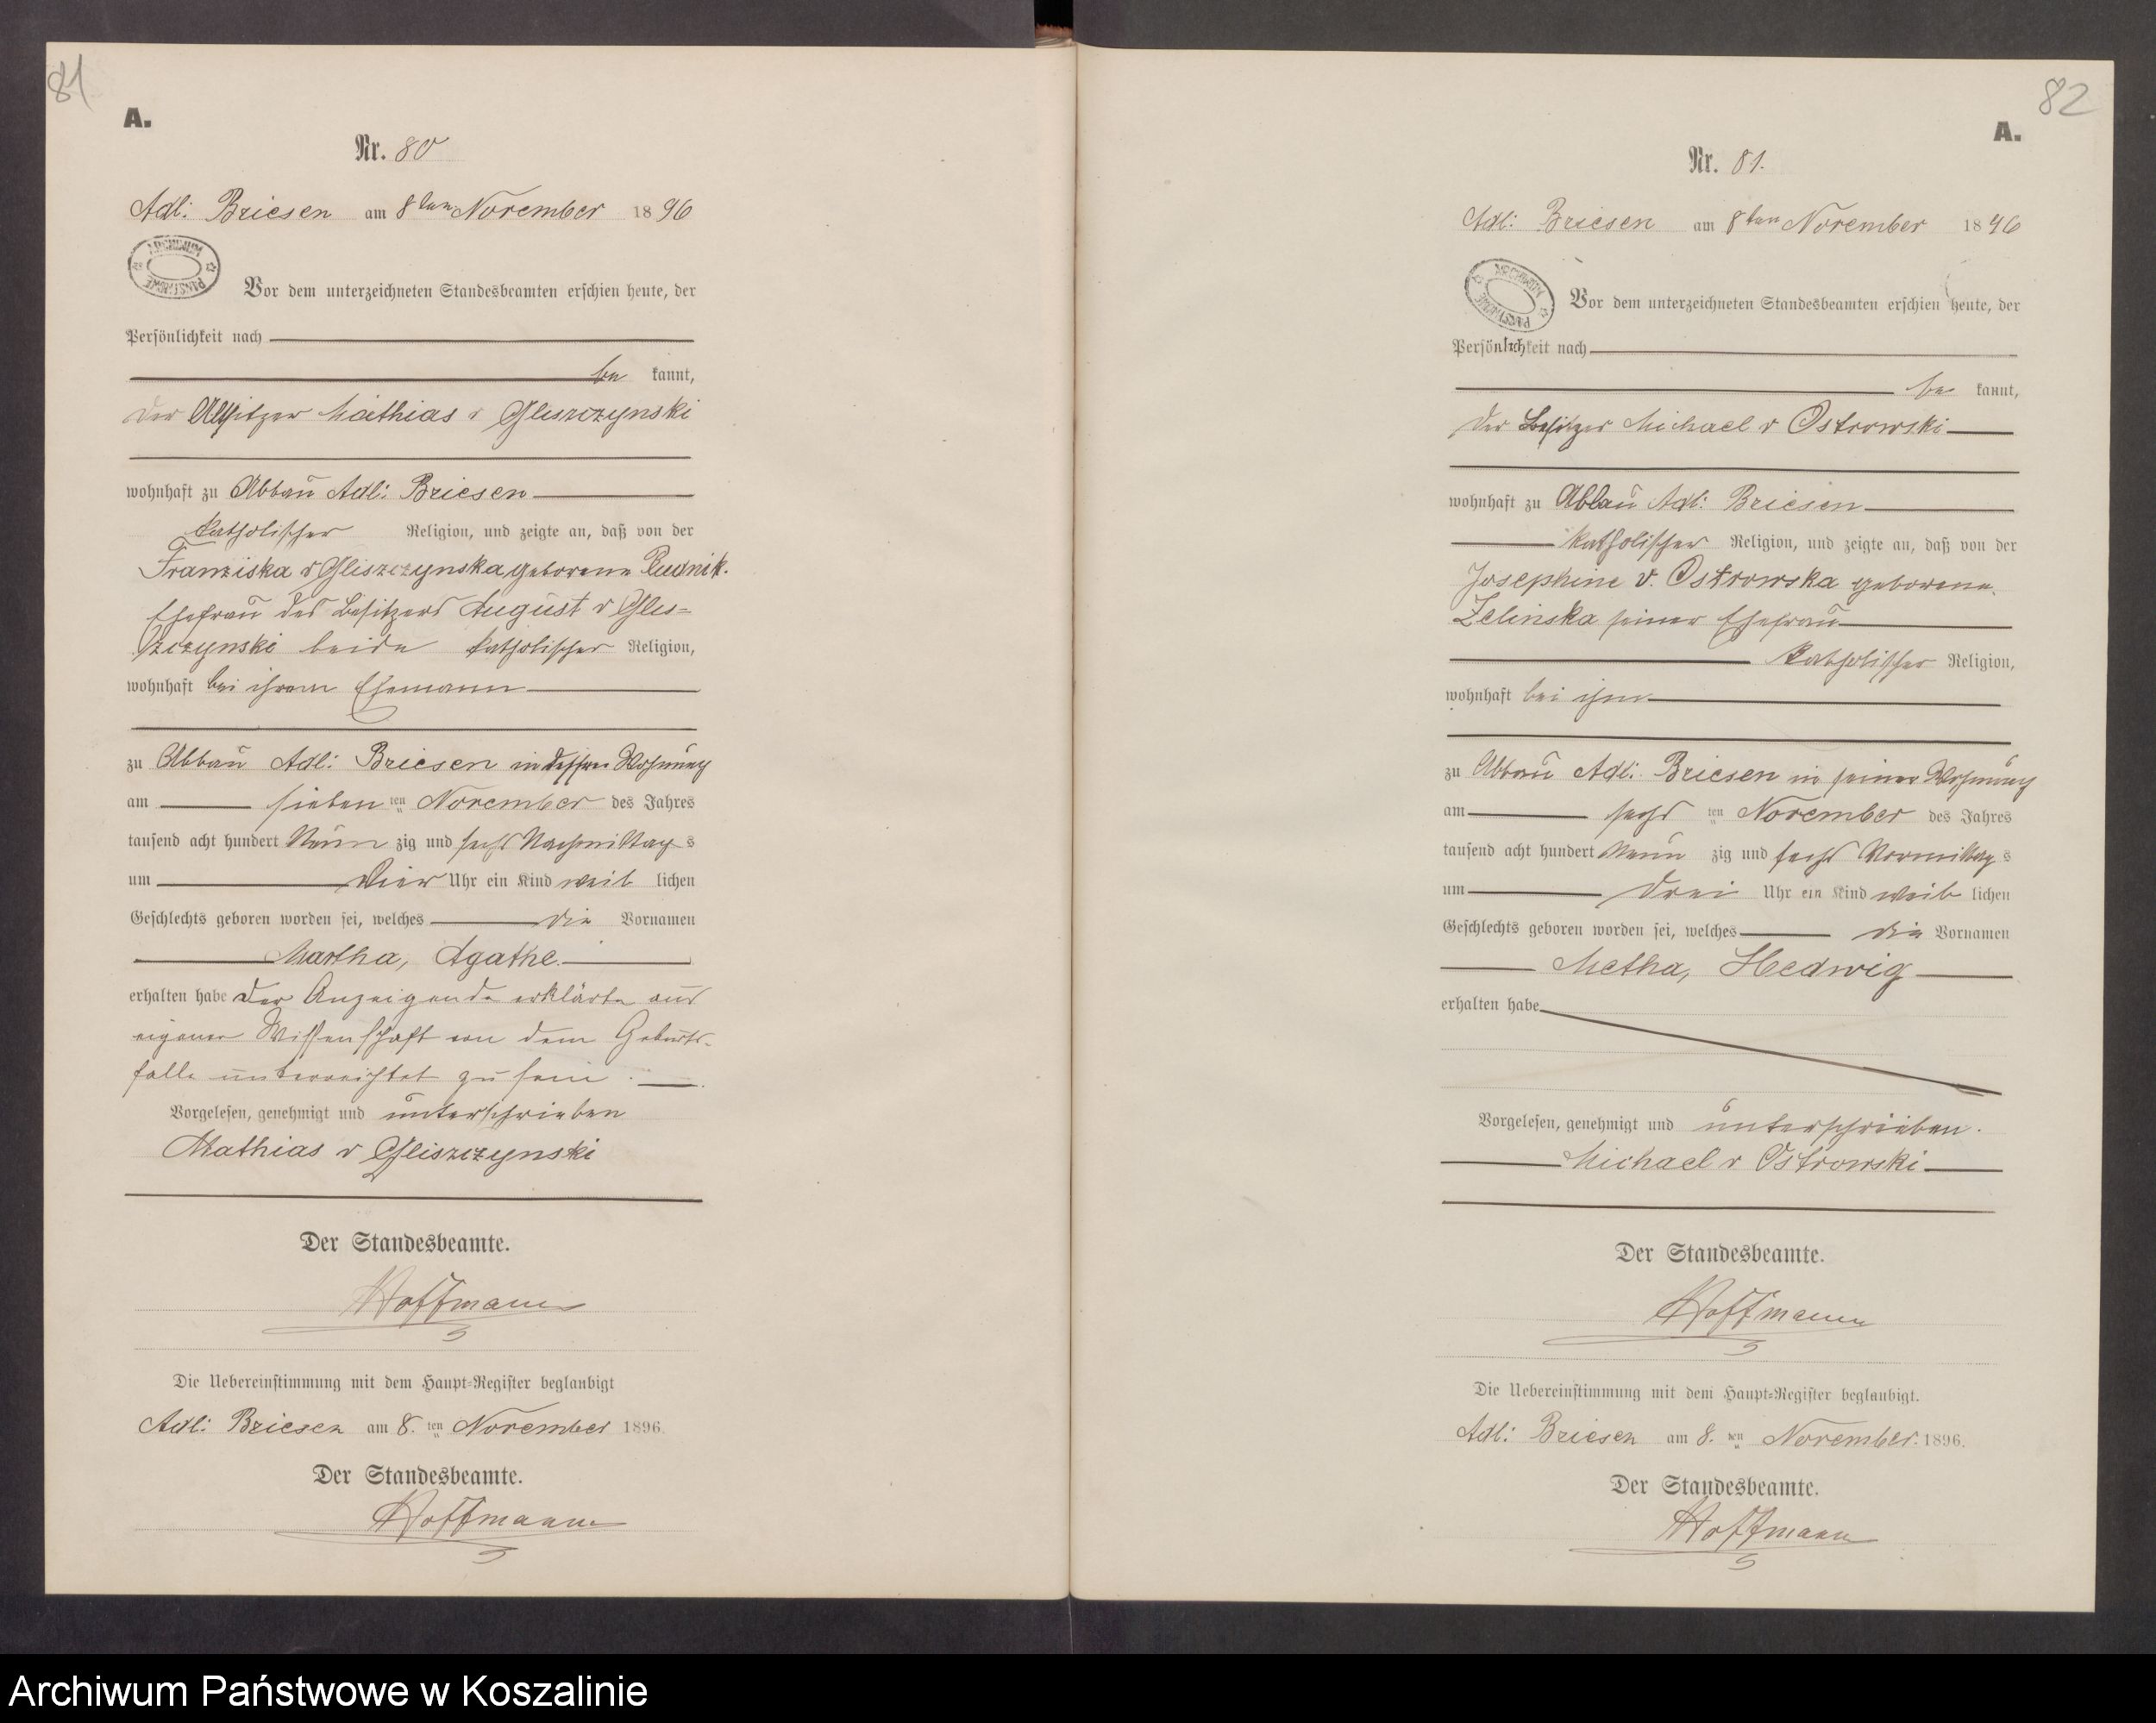 81
A.
Nr. 80
Adl: Briesen am 8ten November 1896
ARCHIWUM PAŃSTWOWE
Vor dem unterzeichneten Standesbeamten erschien heute, der
Persönlichkeit nach
be kannt,
der Altsitzer Mathias v Gliszczynski
wohnhaft zu Abbau Adl: Briesen
katholischer Religion, und zeigte an, daß von der
Franziska v Gliszczynska geborene Rudnik.
Ehefrau des Besitzers August v Glis=
zczynski beide katholischer Religion,
wohnhaft bei ihrem Ehemann
zu Abbau Adl: Briesen in dessen Wohnung
am sieben ten November des Jahres
tausend acht hundert Neun zig und sechs Nachmittag s
um Vier Uhr ein Kind weib lichen
Geschlechts geboren worden sei, welches die Vornamen
Martha, Agathe.
erhalten habe Der Anzeigende erklärte aus
eigener Wissenschaft von dem Geburts-
falle unterrichtet zu sein.
Vorgelesen, genehmigt und unterschrieben
Mathias v Gliszczynski
Der Standesbeamte.
Hoffmann
Die Uebereinstimmung mit dem Haupt=Register beglaubigt
Adl: Briesen am 8. ten November 1896.
Der Standesbeamte.
Hoffmann
82
A.
Nr. 81.
Adl: Briesen am 8ten November 1896
ARCHIWUM PAŃSTWOWE
Vor dem unterzeichneten Standesbeamten erschien heute, der
Persönlichkeit nach
be kannt,
der Besitzer Michael v Ostrowski
wohnhaft zu Abbau Adl: Briesen
katholischer Religion, und zeigte an, daß von der
Josephine v. Ostrowska geborene
Zelinska seiner Ehefrau
katholischer Religion,
wohnhaft bei ihm
zu Abbau Adl: Briesen in seiner Wohnung
am sechs ten November des Jahres
tausend acht hundert Neun zig und sechs Vormittag s
um drei Uhr ein Kind weib lichen
Geschlechts geboren worden sei, welches die Vornamen
Metha, Hedwig
erhalten habe
Vorgelesen, genehmigt und unterschrieben.
Michael v Ostrowski
Der Standesbeamte.
Hoffmann
Die Uebereinstimmung mit dem Haupt=Register beglaubigt.
Adl: Briesen am 8. ten November 1896.
Der Standesbeamte.
Hoffmann
Archiwum Państwowe w Koszalinie